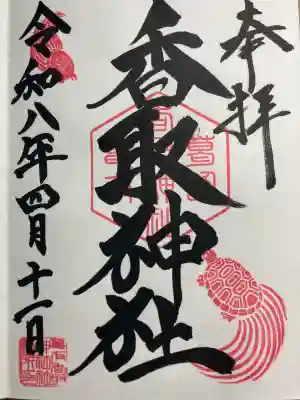 奉拝
香取神社
令和八年四月十一日